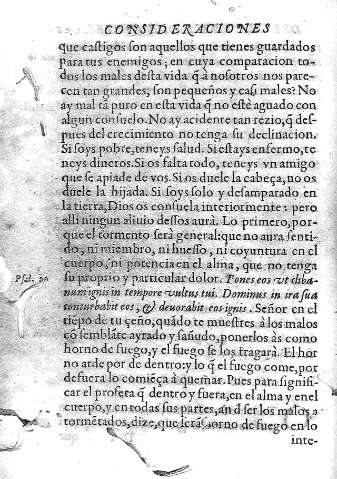 CONSIDERACIONES
que castigos son aquellos que tienes guardados
para tus enemigos, en cuya comparacion to-
dos los males desta vida q̃ a nosotros nos pare-
cen tan grandes, son pequeños y casi males? No
ay mal tã puro en esta vida q̃ no estè aguado con
algun consuelo. No ay acidente tan rezio, q̃ des-
pues del crecimiento no tenga su declinacion.
Si soys pobre, teneys salud. Si estays enfermo, te-
neys dineros. Si os falta todo, teneys vn amigo
que se apiade de vos. Si os duele la cabeça, no os
duele la hijada. Si soys solo y desamparado en
la tierra, Dios os consuela interiormente: pero
alli ningun aliuio dessos aurà. Lo primero, por-
que el tormento serà general: que no aura senti-
do, ni miembro, ni huesso, ni coyuntura en el
cuerpo, ni potencia en el alma, que no tenga
Psal. 20
su proprio y particular dolor. Pones eos vt cliba-
num ignis in tempore vultus tui. Dominus in ira sua
conturbabit eos, & deuorabit eos ignis. Señor en el
tiẽpo de tu ceño, quãdo te muestres à los malos
cõ semblãte ayrado y sañudo, ponerlos às como
horno de fuego, y el fuego se los tragarà. El hor
no arde por de dentro: y lo q̃ el fuego come, por
defuera lo comiẽça à quemar. Pues para signifi-
car el profeta q̃ dentro y fuera, en el alma y en el
cuerpo, y en todas sus partes, an d̃ ser los malos a
tormẽtados, dize, que serã horno de fuego en lo
inte-